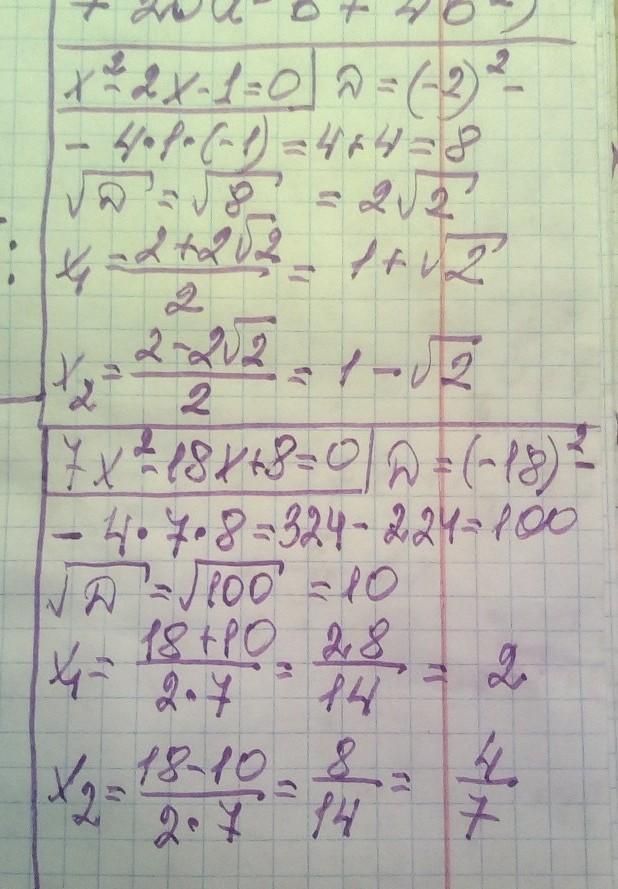 x² - 2x - 1 = 0 | D = (-2)² -
- 4·1·(-1) = 4+4 = 8
√D = √8 = 2√2
x₁ = (2+2√2)/2 = 1+√2
x₂ = (2-2√2)/2 = 1-√2
7x² - 18x + 8 = 0 | D = (-18)² -
- 4·7·8 = 324 - 224 = 100
√D = √100 = 10
x₁ = (18+10)/(2·7) = 28/14 = 2
x₂ = (18-10)/(2·7) = 8/14 = 4/7